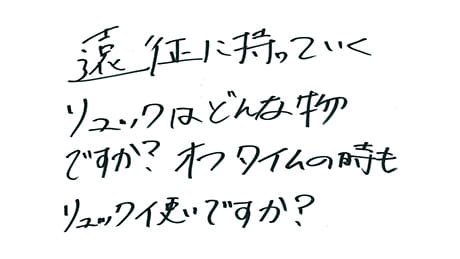 遠征に持っていく
リュックはどんな物
ですか?オフタイムの時も
リュック使いですか?